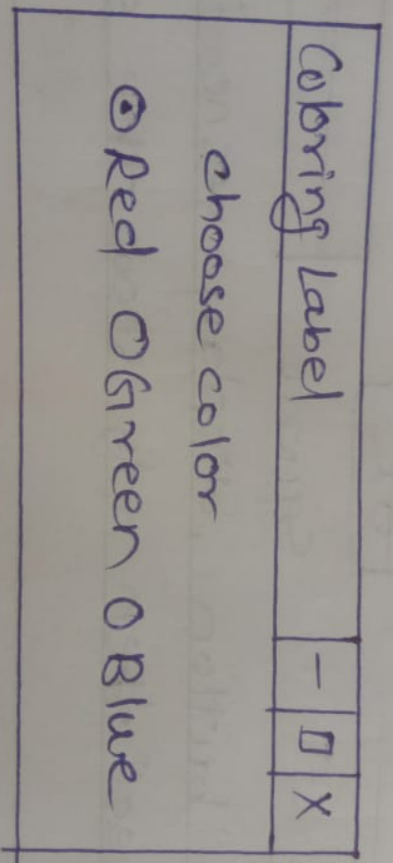 Coloring Label - □ X
choose color
Red Green Blue